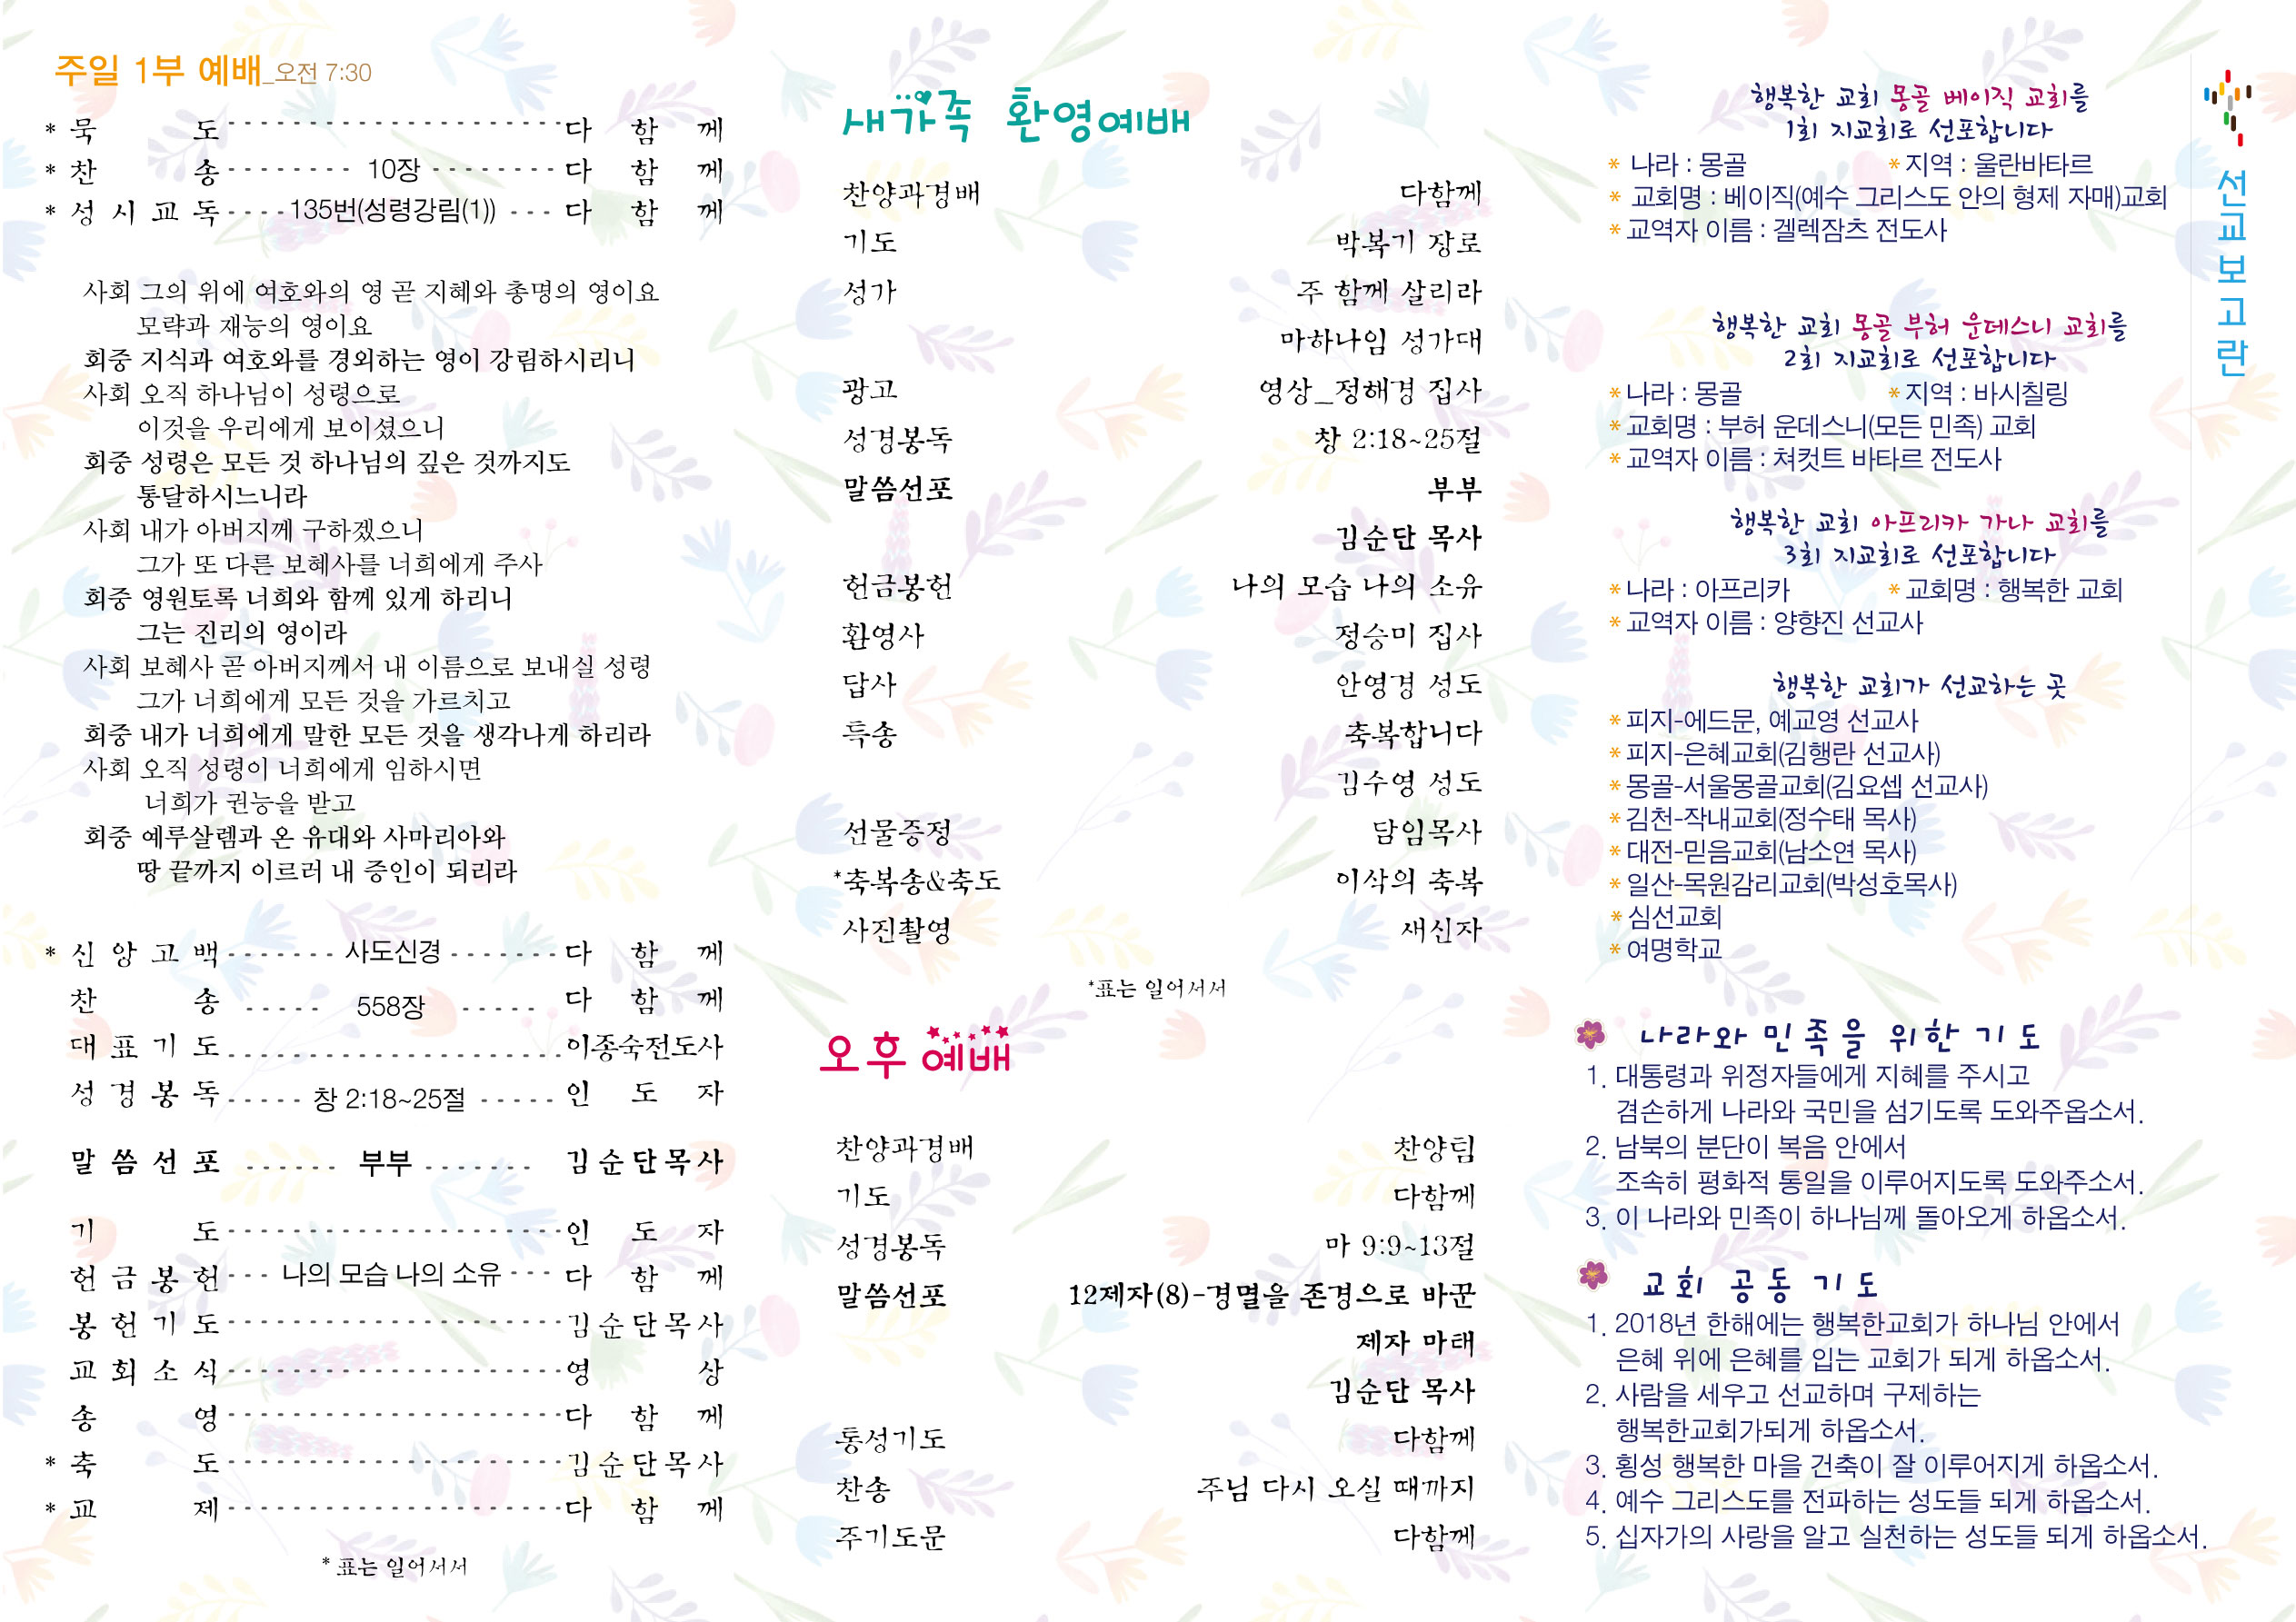 주일 1부 예배_오전 7:30
* 묵 도 다 함 께
* 찬 송 10장 다 함 께
* 성 시 교 독 135번(성령강림(1)) 다 함 께
사회 그의 위에 여호와의 영 곧 지혜와 총명의 영이요
모략과 재능의 영이요
회중 지식과 여호와를 경외하는 영이 강림하시리니
사회 오직 하나님이 성령으로
이것을 우리에게 보이셨으니
회중 성령은 모든 것 하나님의 깊은 것까지도
통달하시느니라
사회 내가 아버지께 구하겠으니
그가 또 다른 보혜사를 너희에게 주사
회중 영원토록 너희와 함께 있게 하리니
그는 진리의 영이라
사회 보혜사 곧 아버지께서 내 이름으로 보내실 성령
그가 너희에게 모든 것을 가르치고
회중 내가 너희에게 말한 모든 것을 생각나게 하리라
사회 오직 성령이 너희에게 임하시면
너희가 권능을 받고
회중 예루살렘과 온 유대와 사마리아와
땅 끝까지 이르러 내 증인이 되리라
* 신 앙 고 백 사도신경 다 함 께
찬 송 558장 다 함 께
대 표 기 도 이종숙전도사
성 경 봉 독 창 2:18~25절 인 도 자
말 씀 선 포 부부 김 순 단 목 사
기 도 인 도 자
헌 금 봉 헌 나의 모습 나의 소유 다 함 께
봉 헌 기 도 김 순 단 목 사
교 회 소 식 영 상
송 영 다 함 께
* 축 도 김 순 단 목 사
* 교 제 다 함 께
* 표는 일어서서
새가족 환영예배
찬양과경배 다함께
기도 박복기 장로
성가 주 함께 살리라
마하나임 성가대
광고 영상_정해경 집사
성경봉독 창 2:18~25절
말씀선포 부부
김순단 목사
헌금봉헌 나의 모습 나의 소유
환영사 정승미 집사
답사 안영경 성도
특송 축복합니다
김수영 성도
선물증정 담임목사
*축복송&축도 이삭의 축복
사진촬영 새신자
*표는 일어서서
오후 예배
찬양과경배 찬양팀
기도 다함께
성경봉독 마 9:9~13절
말씀선포 12제자(8)-경멸을 존경으로 바꾼
제자 마태
김순단 목사
통성기도 다함께
찬송 주님 다시 오실 때까지
주기도문 다함께
선교보고란
행복한 교회 몽골 베이직 교회를
1회 지교회로 선포합니다
* 나라 : 몽골 * 지역 : 울란바타르
* 교회명 : 베이직(예수 그리스도 안의 형제 자매)교회
* 교역자 이름 : 겔렉잠츠 전도사
행복한 교회 몽골 부허 운데스니 교회를
2회 지교회로 선포합니다
* 나라 : 몽골 * 지역 : 바시칠링
* 교회명 : 부허 운데스니(모든 민족) 교회
* 교역자 이름 : 쳐컷트 바타르 전도사
행복한 교회 아프리카 가나 교회를
3회 지교회로 선포합니다
* 나라 : 아프리카 * 교회명 : 행복한 교회
* 교역자 이름 : 양향진 선교사
행복한 교회가 선교하는 곳
* 피지-에드문, 예교영 선교사
* 피지-은혜교회(김행란 선교사)
* 몽골-서울몽골교회(김요셉 선교사)
* 김천-작내교회(정수태 목사)
* 대전-믿음교회(남소연 목사)
* 일산-목원감리교회(박성호목사)
* 심선교회
* 여명학교
나라와 민족을 위한 기도
1. 대통령과 위정자들에게 지혜를 주시고
겸손하게 나라와 국민을 섬기도록 도와주옵소서.
2. 남북의 분단이 복음 안에서
조속히 평화적 통일을 이루어지도록 도와주소서.
3. 이 나라와 민족이 하나님께 돌아오게 하옵소서.
교회 공동 기도
1. 2018년 한해에는 행복한교회가 하나님 안에서
은혜 위에 은혜를 입는 교회가 되게 하옵소서.
2. 사람을 세우고 선교하며 구제하는
행복한교회가되게 하옵소서.
3. 횡성 행복한 마을 건축이 잘 이루어지게 하옵소서.
4. 예수 그리스도를 전파하는 성도들 되게 하옵소서.
5. 십자가의 사랑을 알고 실천하는 성도들 되게 하옵소서.